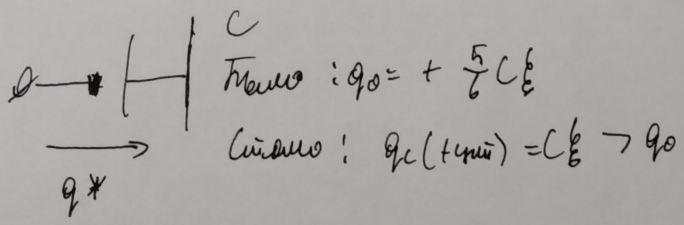 C
Было : q₀ = + 5/6 Cℰ
Стало : qc (+ ) = Cℰ > q₀
q*